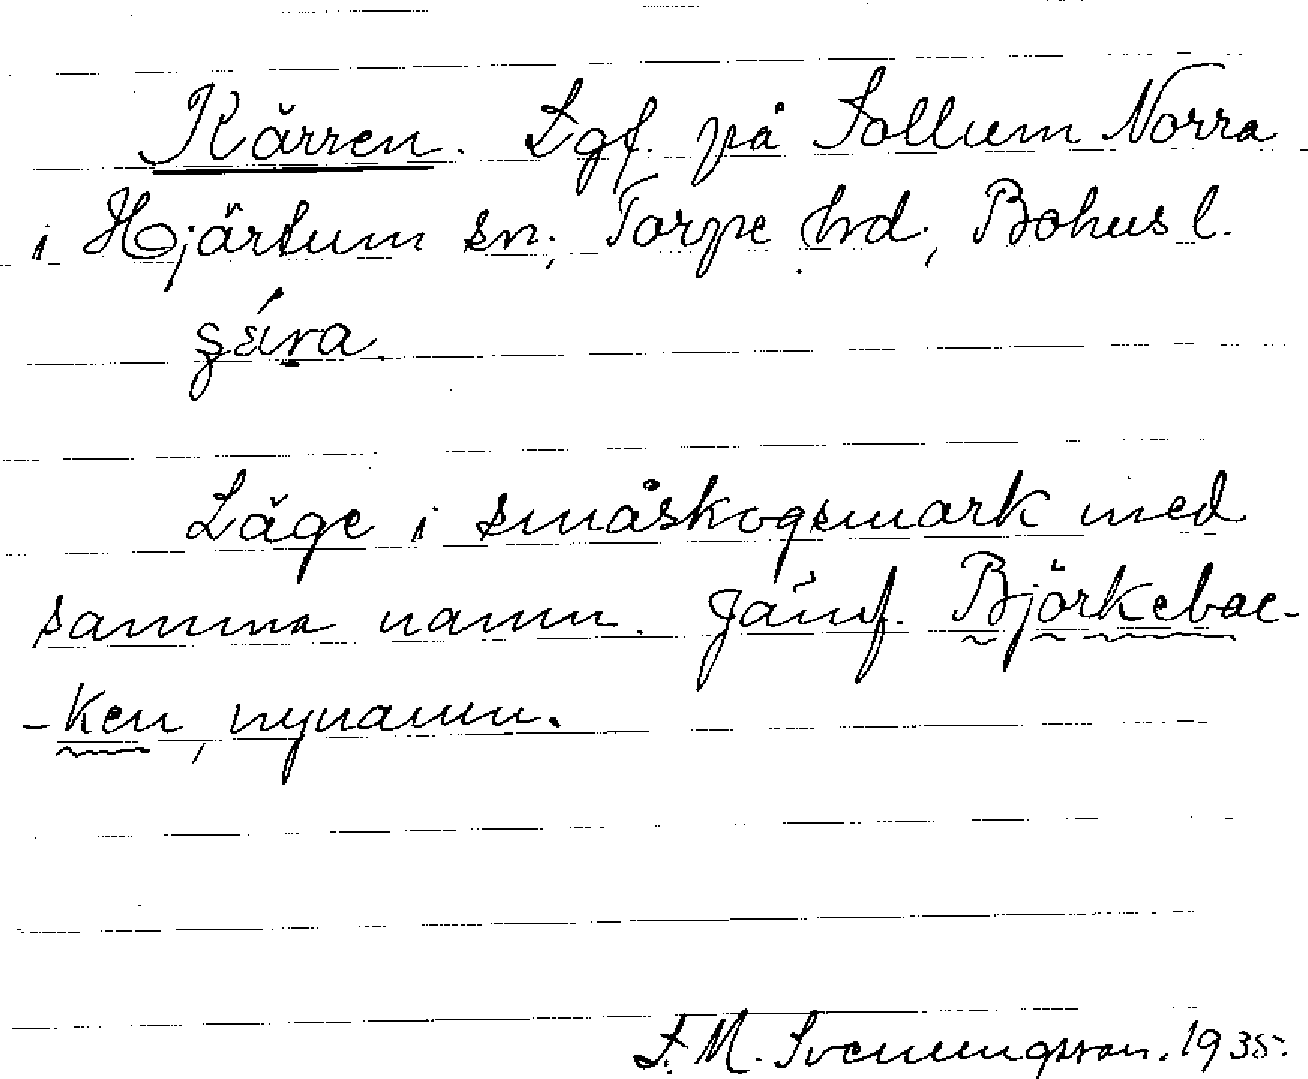 Kärren. Lgf. på Sollum Norra
i Hjärtum sn, Torpe hd, Bohusl.
Läge i småskogsmark med
samma namn. Jämf. Björkebac-
-ken, nynamn.
F. M. Svenungsson. 1935.